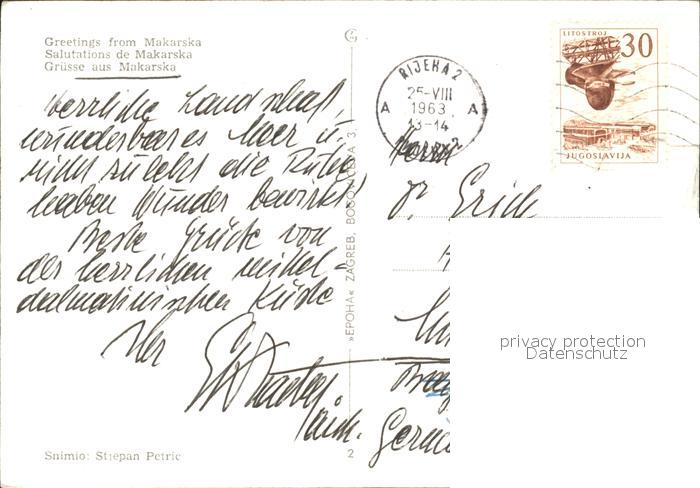 Greetings from Makarska
Salutations de Makarska
Grüsse aus Makarska
herrliche Landschaft,
wunderbares Meer u.
nicht zuletzt die Ruhe
haben Wunder bewirkt!
Beste Grüße von
der herrlichen mittel-
dalmatinischen Küste
Ihr
Snimio: Stjepan Petric
2
»EPOHA« ZAGREB, BOGOVIĆEVA 3
RIJEKA 2
25-VIII
1963
13-14
A A
LITOSTROJ
30
JUGOSLAVIJA
Herrn
Dr. Erich
privacy protection
Datenschutz